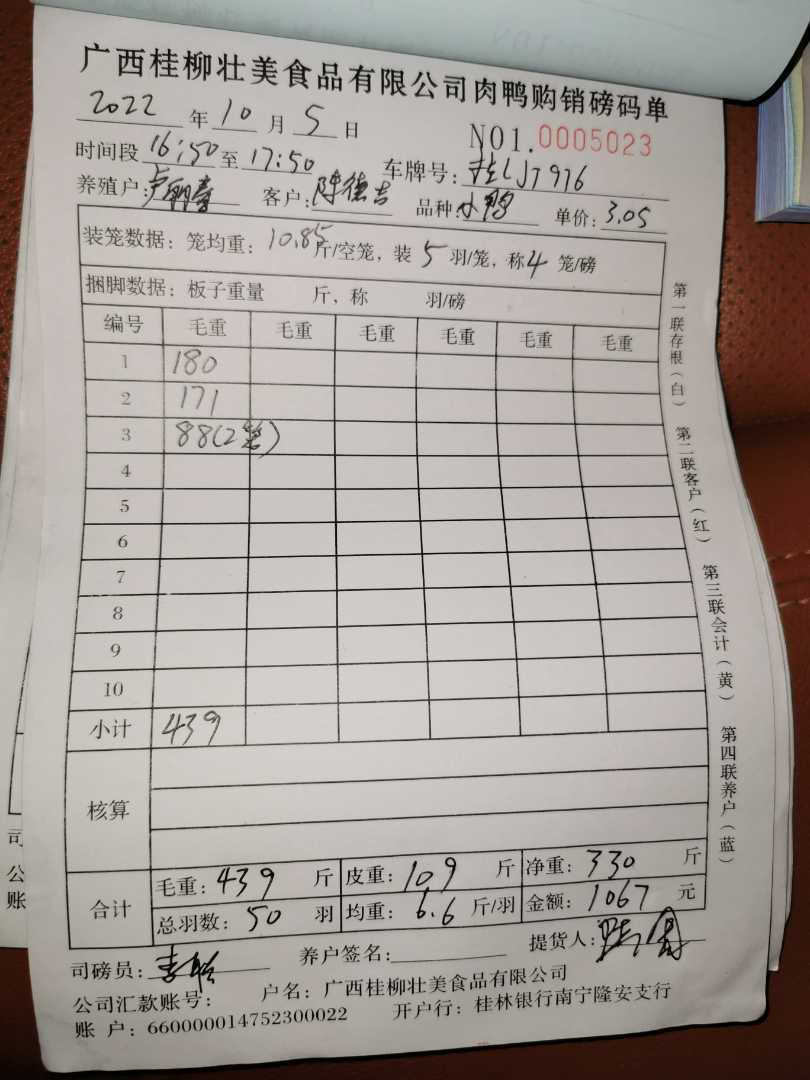 广西桂柳壮美食品有限公司肉鸭购销磅码单
2022 年 10 月 5 日 NO1.0005023
时间段 16:50 至 17:50 车牌号:桂LJ7916
养殖户: 客户:陈德吉 品种 小鸭 单价:3.05
装笼数据:笼均重:10.85斤/空笼,装 5 羽/笼,称4 笼/磅
捆脚数据:板子重量 斤,称 羽/磅
编号 毛重 毛重 毛重 毛重 毛重 毛重
1 180
2 171
3 88(2笼)
4
5
6
7
8
9
10
小计 439
核算
合计 毛重:439 斤 皮重:109 斤 净重:330 斤
总羽数:50 羽 均重:6.6 斤/羽 金额:1067 元
司磅员: 养户签名: 提货人:
公司汇款账号: 户名:广西桂柳壮美食品有限公司
账 户:660000014752300022 开户行:桂林银行南宁隆安支行
第一联存根(白) 第二联客户(红) 第三联会计(黄) 第四联养户(蓝)
司
公
账